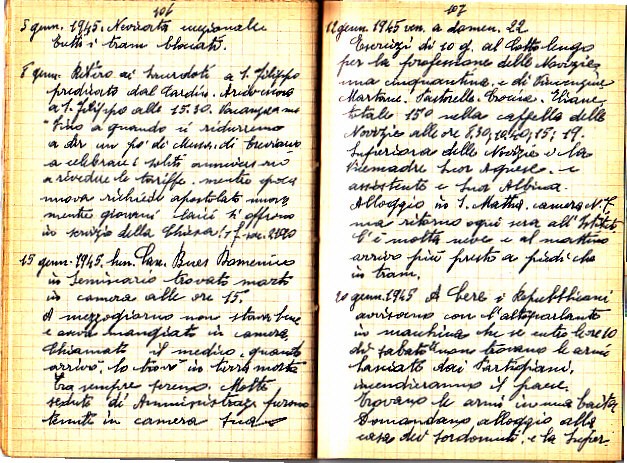 106
5 genn. 1945: Nevicata eccezionale
Tutti i tram bloccati.
8 genn. Ritiro ai Sacerdoti a S. Filippo
predicato dal Cardin. Arcivescovo
a S. Filippo alle 15.30.
"Fino a quando ci ridurremo
a dir un po' di Messa, di Breviario
a celebrare i soliti anniversari
a rivedere le tariffe. mentre epoca
nuova richiede apostolato nuovo
mentre giovani laici s'offrono
in servizio della Chiesa!
15 genn. 1945. lun. Can. Bues Domenico
in Seminario trovato morto
in camera alle ore 15.
A mezzogiorno non stava bene
e aveva mangiato in camera.
Chiamato il medico, quando
arrivò, lo trovò in terra morto
Era sempre sereno. Molte
sedute di Amministraz. furono
tenute in camera sua
107
12 genn. 1945 ven. a domen. 22
Esercizi di 10 g. al Cottolengo
per la professione delle Novizie
una cinquantina. e di Vincenzine
Martane. Pastorelle. Crocine.
totale 150 nella cappella delle
Novizie alle ore 8,30; 10,20; 15; 19.
Superiora delle Novizie è la
Vicemadre Suor Agnese. e
assistente è Suor Albina.
Alloggio in S. Mattia. camera N. 7.
ma ritorno ogni sera all'Istituto
C'è molta neve e al mattino
arrivo più presto a piedi che
in tram.
20 genn. 1945 A Ceres i Repubblicani
avvisarono con l'altoparlante
in macchina che se entro le ore 10
di sabato non trovano le armi
lasciate dai Partigiani,
incendieranno il paese.
Trovano le armi in una baita
Domandano alloggio alla
casa dei Sordomuti. e la Super.